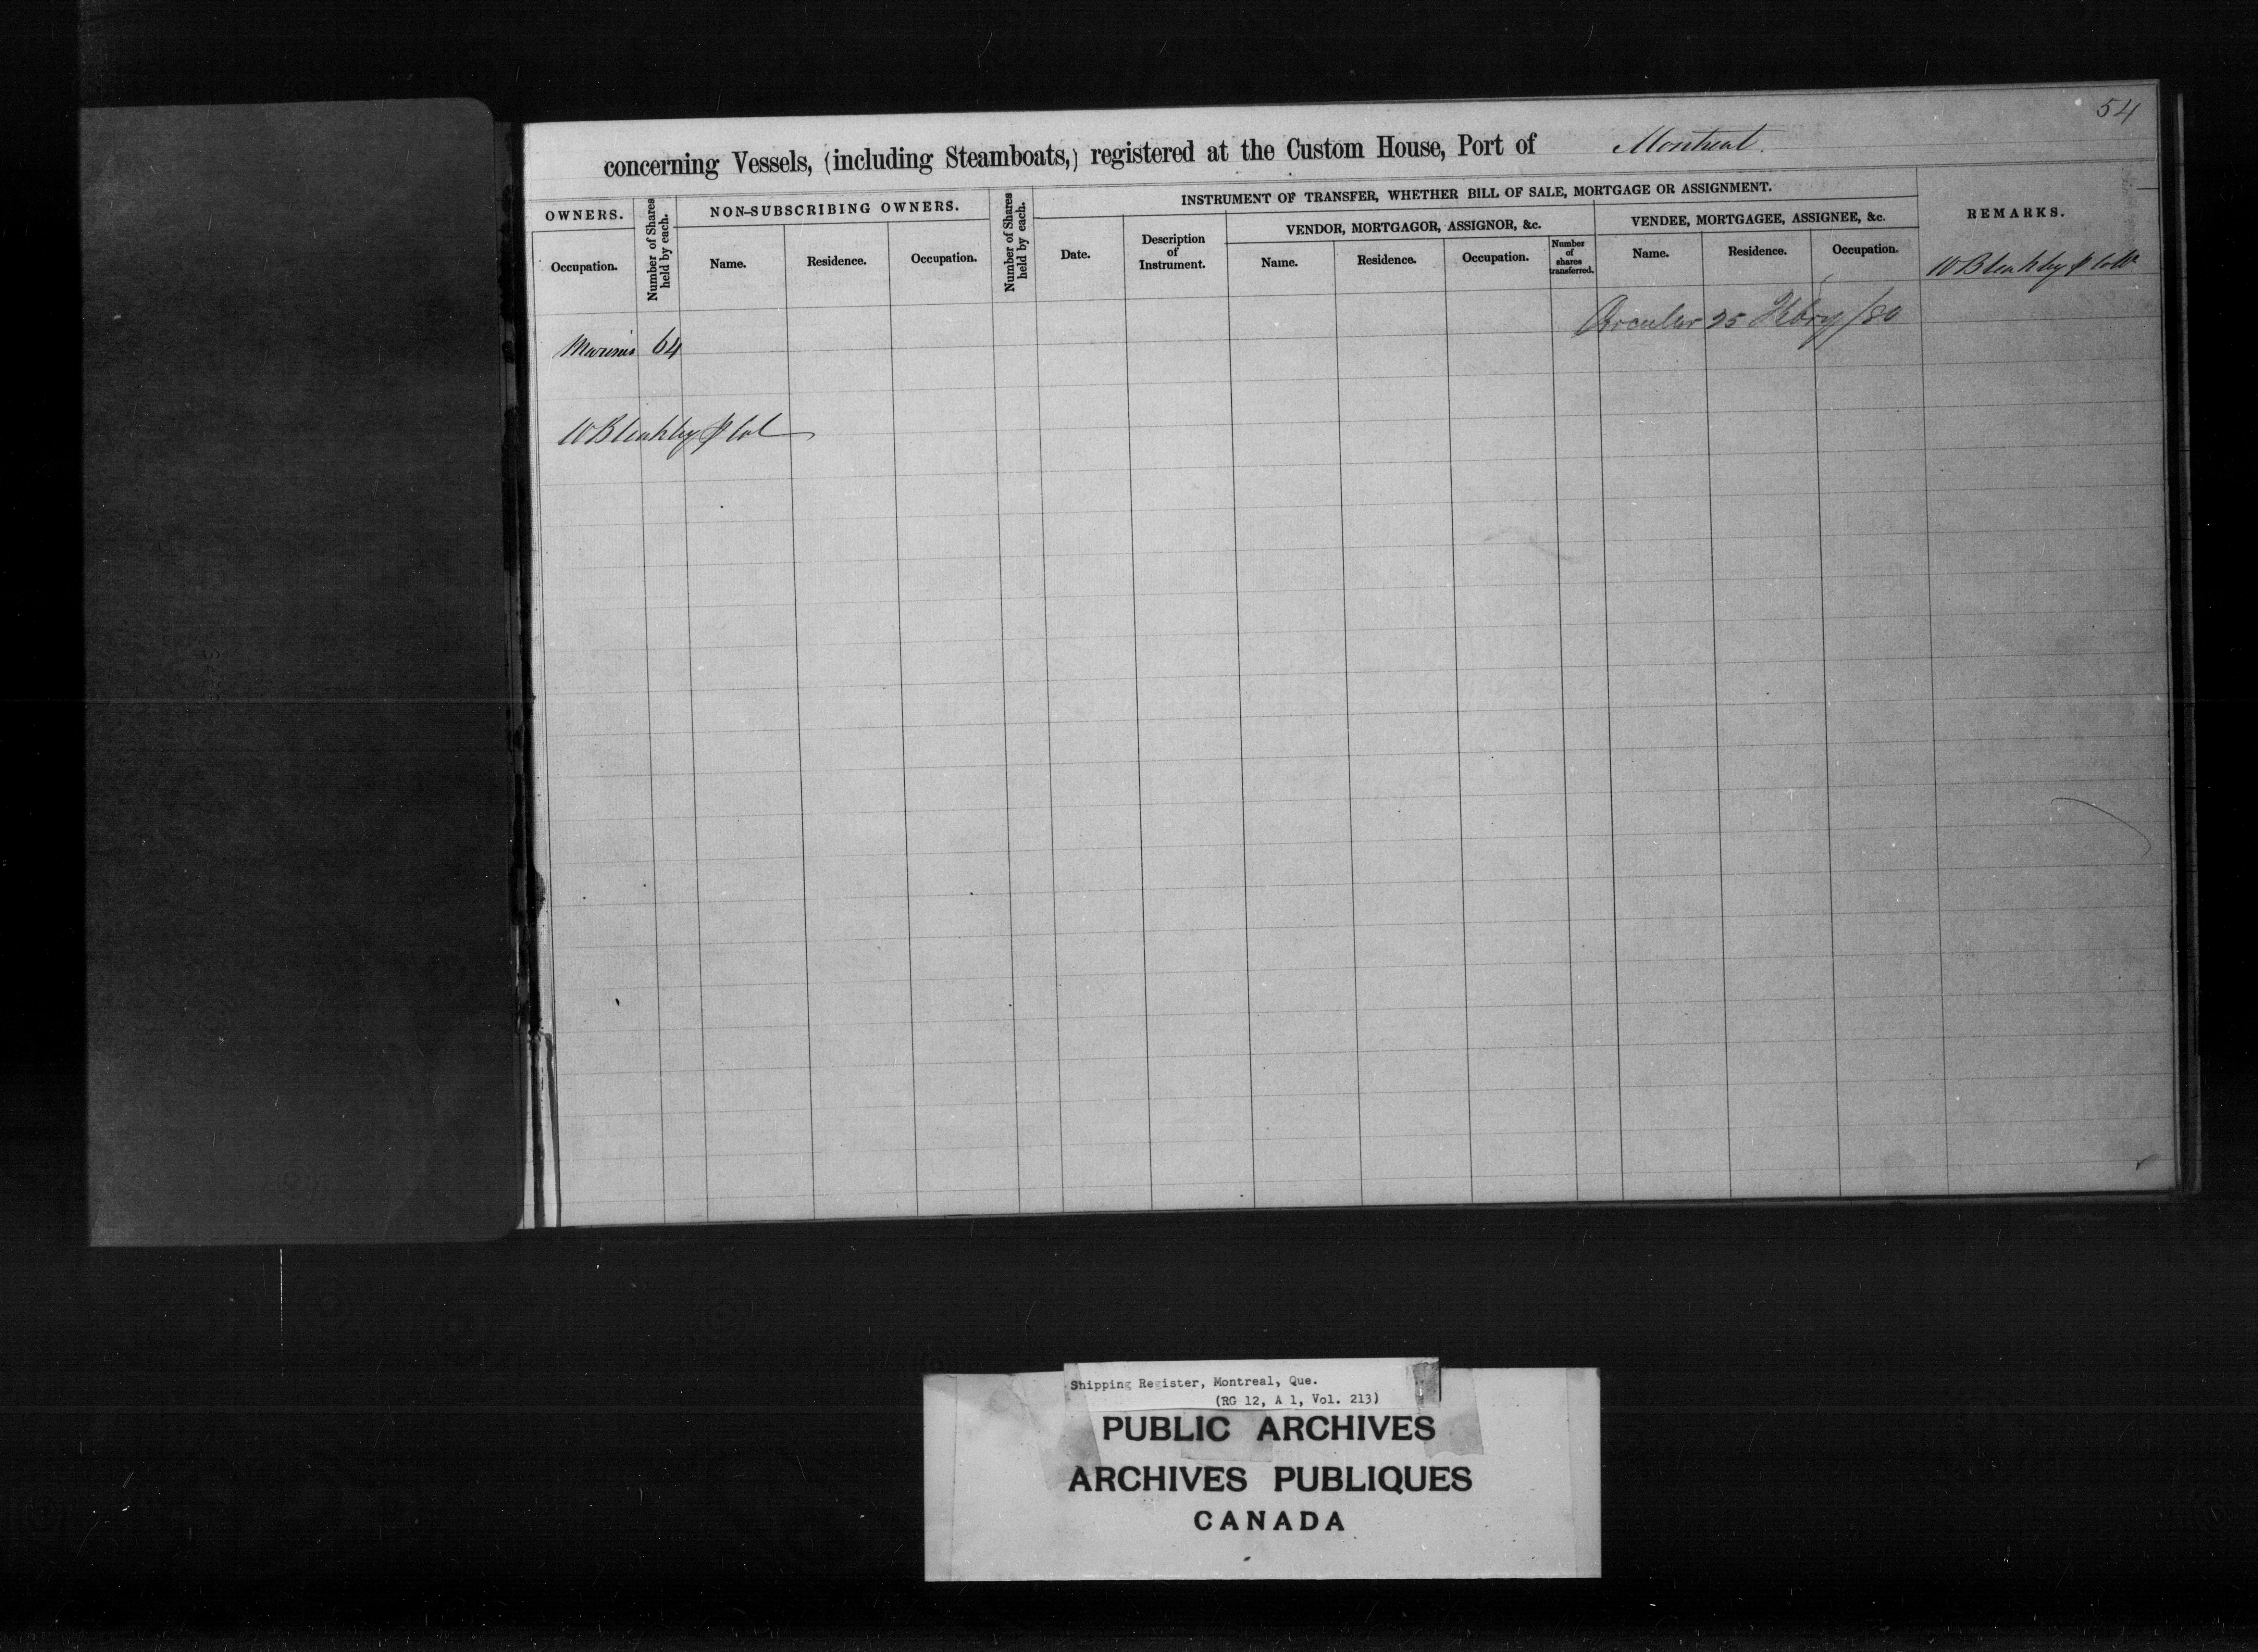 54
concerning Vessels, (including Steamboats,) registered at the Custom House, Port of Montreal.
OWNERS.
Number of Shares held by each.
NON-SUBSCRIBING OWNERS.
Number of Shares held by each.
INSTRUMENT OF TRANSFER, WHETHER BILL OF SALE, MORTGAGE OR ASSIGNMENT.
REMARKS.
VENDOR, MORTGAGOR, ASSIGNOR, &c.
VENDEE, MORTGAGEE, ASSIGNEE, &c.
Occupation.
Name.
Residence.
Occupation.
Date.
Description of Instrument.
Name.
Residence.
Occupation.
Number of shares transferred.
Name.
Residence.
Occupation.
W Bleakley
Circular 25 Febry/80
64
W Bleakley
Shipping Register, Montreal, Que.
(RG 12, A 1, Vol. 213)
PUBLIC ARCHIVES
ARCHIVES PUBLIQUES
CANADA